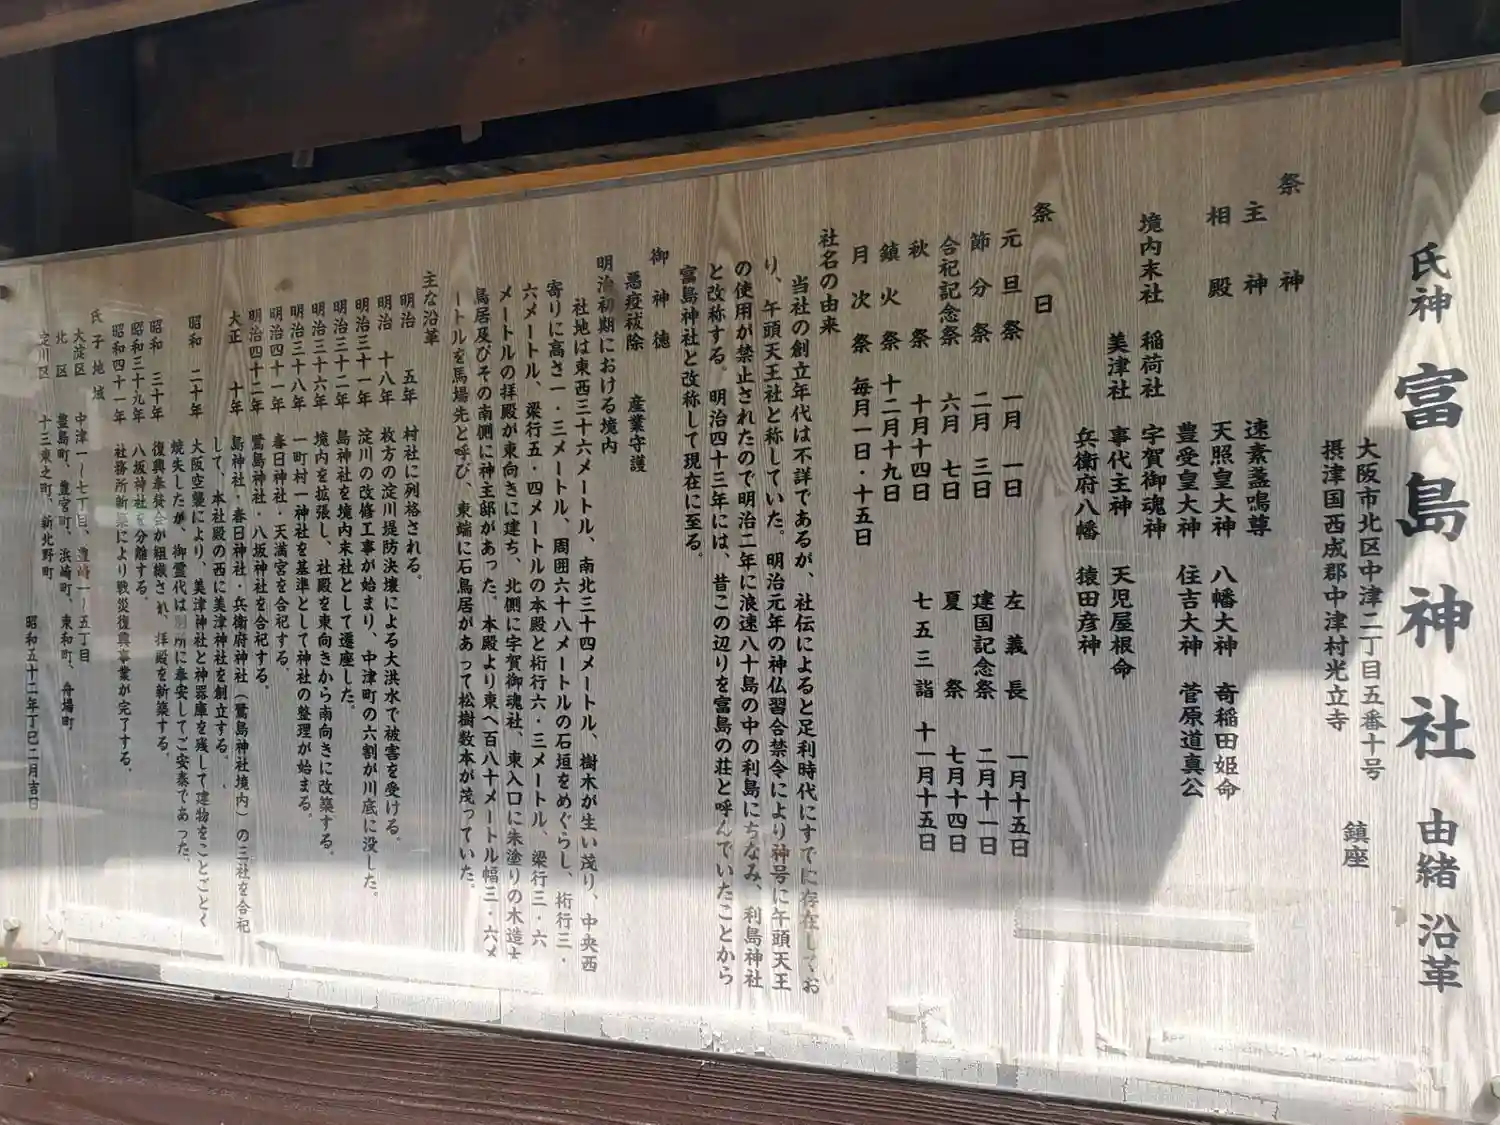 氏神 富島神社 由緒沿革
大阪市北区中津二丁目五番十号
摂津国西成郡中津村光立寺 鎮座
祭神
主神 速素盞鳴尊
相殿 天照皇大神 八幡大神 奇稲田姫命
豊受皇大神 住吉大神 菅原道真公
境内末社 稲荷社 宇賀御魂神
美津社 事代主神 天児屋根命
兵衛府八幡 猿田彦神
祭日
元旦祭 一月一日 左義長 一月十五日
節分祭 二月三日 建国記念祭 二月十一日
合祀記念祭 六月七日 夏祭 七月十四日
秋祭 十月十四日 七五三詣 十一月十五日
鎮火祭 十二月十九日
月次祭 毎月一日・十五日
社名の由来
当社の創立年代は不詳であるが、社伝によると足利時代にすでに存在してお
り、午頭天王社と称していた。明治元年の神仏習合禁令により神号に午頭天王
の使用が禁止されたので明治二年に浪速八十島の中の利島にちなみ、利島神社
と改称する。明治四十三年には、昔この辺りを富島の荘と呼んでいたことから
富島神社と改称して現在に至る。
御神徳
悪疫祓除 産業守護
明治初期における境内
社地は東西三十六メートル、南北三十四メートル、樹木が生い茂り、中央西
寄りに高さ一・三メートル、周囲六十八メートルの石垣をめぐらし、桁行三・
六メートル、梁行五・四メートルの本殿と桁行六・三メートル、梁行三・六
メートルの拝殿が東向きに建ち、北側に宇賀御魂社、東入口に朱塗りの木造大
鳥居及びその南側に神主邸があった。本殿より東へ百八十メートル幅三・六メ
ートルを馬場先と呼び、東端に石鳥居があって松樹数本が茂っていた。
主な沿革
明治 五年 村社に列格される。
明治 十八年 枚方の淀川堤防決壊による大洪水で被害を受ける。
明治三十一年 淀川の改修工事が始まり、中津町の六割が川底に没した。
明治三十二年 島神社を境内末社として遷座した。
明治三十六年 境内を拡張し、社殿を東向きから南向きに改築する。
明治三十八年 一町村一神社を基準として神社の整理が始まる。
明治四十一年 春日神社・天満宮を合祀する。
明治四十二年 鷺島神社・八坂神社を合祀する。
大正 十年 島神社・春日神社・兵衛府神社（鷺島神社境内）の三社を合祀
して、本社殿の西に美津神社を創立する。
昭和 二十年 大阪空襲により、美津神社と神器庫を残して建物をことごとく
焼失したが、御霊代は別所に奉安してご安泰であった。
昭和 三十年 復興奉賛会が組織され、拝殿を新築する。
昭和三十九年 八坂神社を分離する。
昭和四十一年 社務所新築により戦災復興事業が完了する。
氏子地域
大淀区 中津一〜七丁目、豊崎一〜五丁目
北区 豊島町、豊宮町、浜崎町、東和町、舟場町
淀川区 十三東之町、新北野町
昭和五十二年丁巳二月吉日